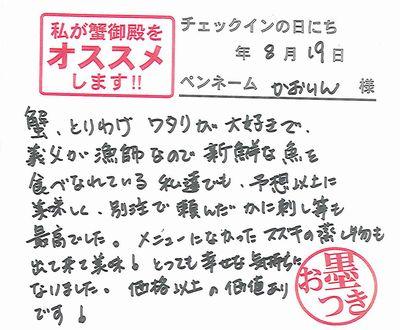 私が蟹御殿を
オススメ
します!!
チェックインの日にち
年 8月19日
ペンネーム かおりん 様
蟹、とりわけ ワタリが 大好きで、
義父が 漁師なので 新鮮な魚を
食べなれている 私達でも、予想以上に
美味しく、別注で 頼んだ かに刺し等も
最高でした。メニューになかった スズキの蒸し物も
出て来て美味! とっても 幸せな気持ちに
なりました。 価格以上の 価値あり
です!
お墨つき